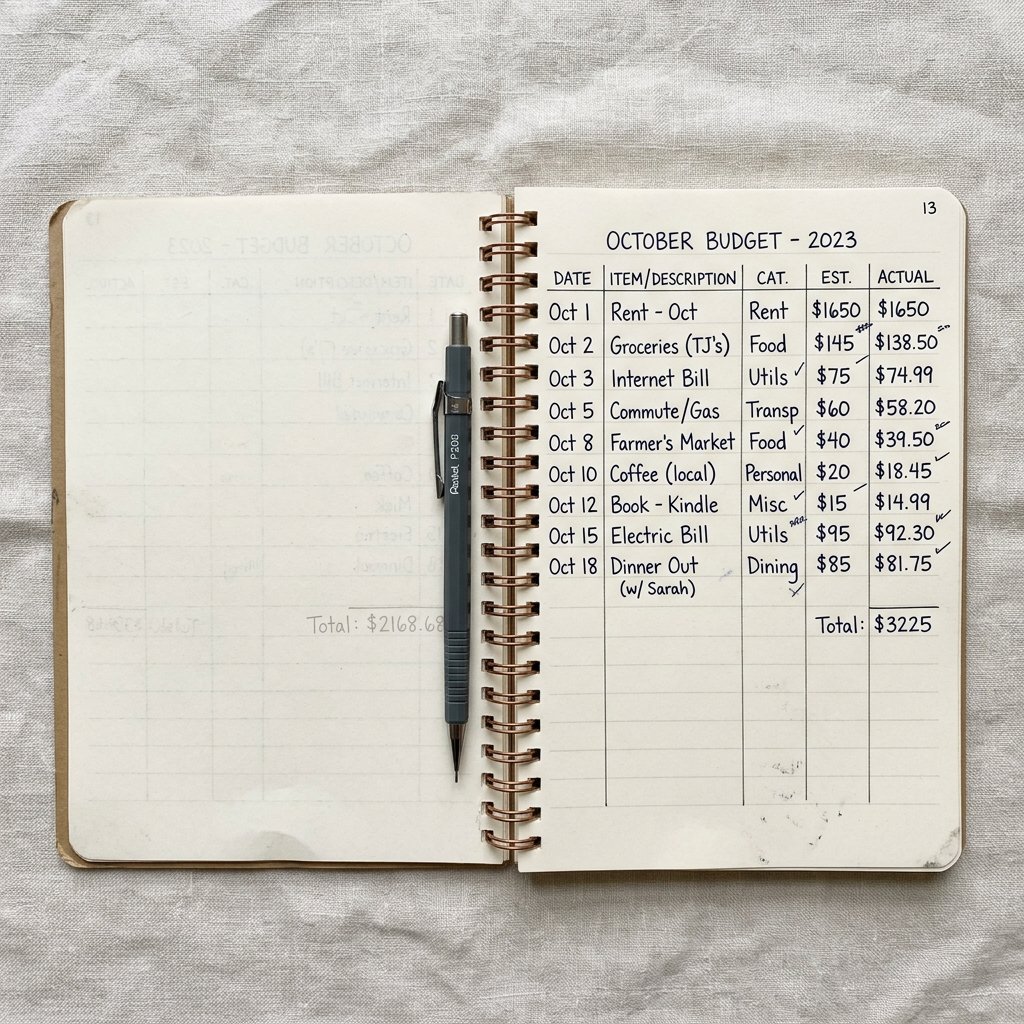 Total: $2168.68
Pentel P206
13
OCTOBER BUDGET – 2023
DATE ITEM/DESCRIPTION CAT. EST. ACTUAL
Oct 1 Rent - Oct Rent $1650 $1650
Oct 2 Groceries (TJ's) Food $145 $138.50
Oct 3 Internet Bill Utils ✓ $75 $74.99
Oct 5 Commute/Gas Transp $60 $58.20
Oct 8 Farmer's Market Food ✓ $40 $39.50
Oct 10 Coffee (local) Personal $20 $18.45 ✓
Oct 12 Book - Kindle Misc ✓ $15 $14.99
Oct 15 Electric Bill Utils $95 $92.30
Oct 18 Dinner Out Dining $85 $81.75 ✓
(w/ Sarah)
Total: $3225